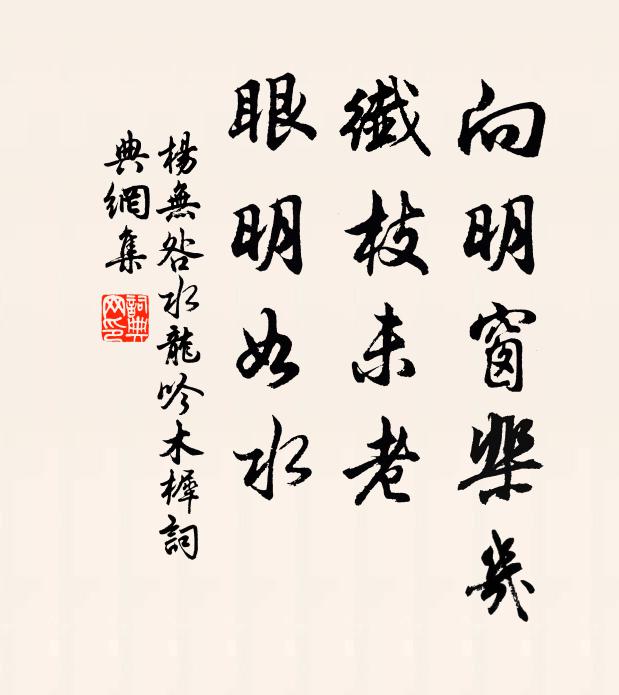 向明窗棐幾
纖枝未老
眼明如水
楊無咎水龍吟木樨詞
典網集
詞典
网印